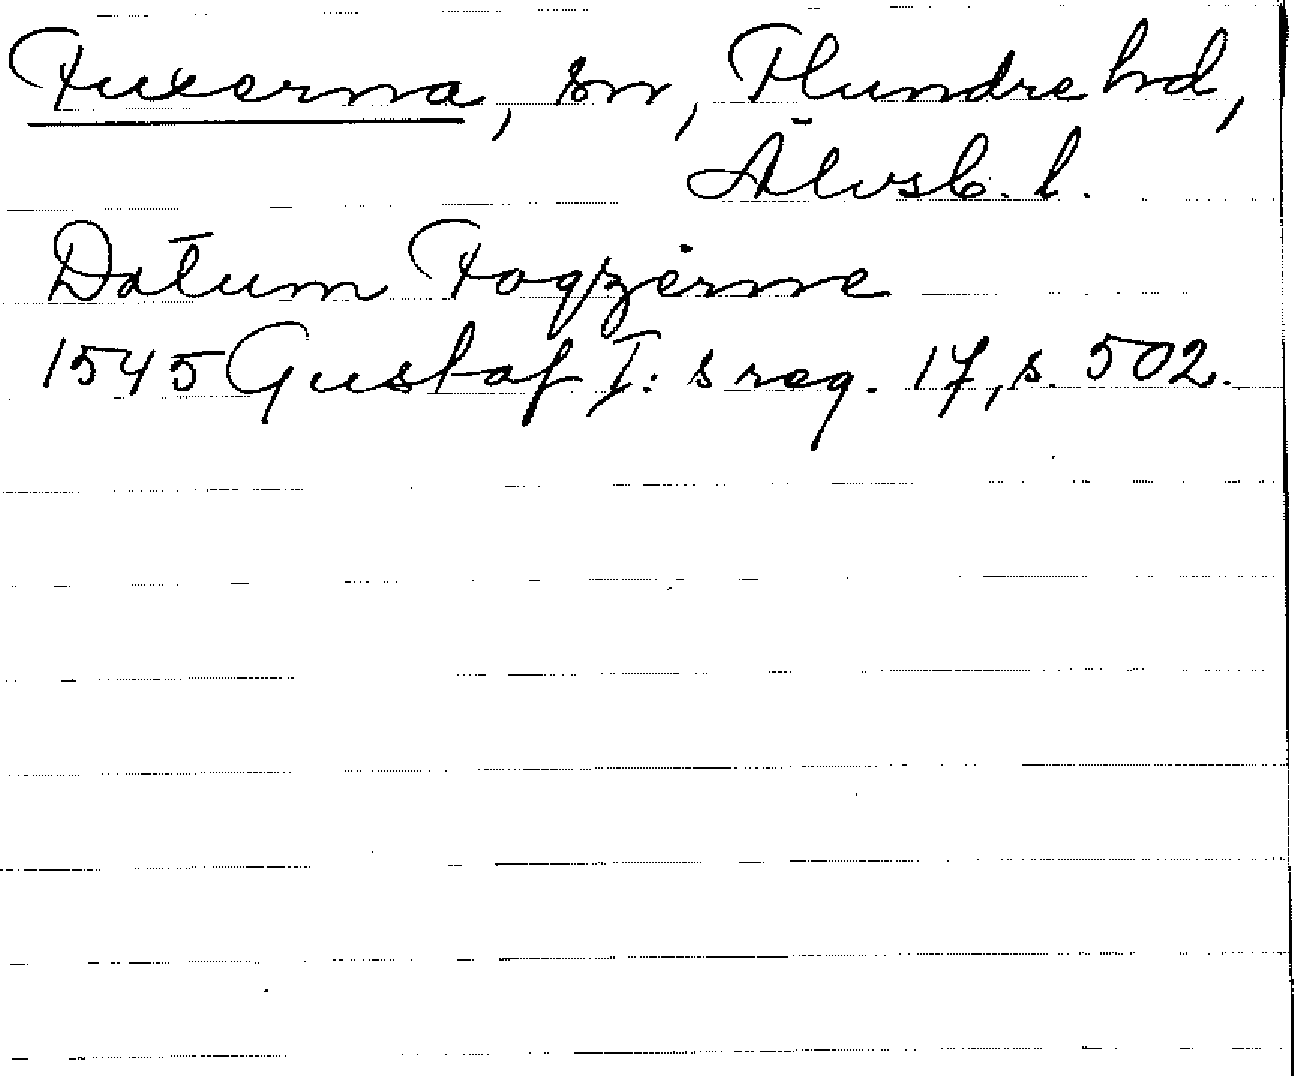 Fuxerna, sn, Flundre hd,
Älvsb. l.
Datum Foqzerne
1545 Gustaf I: s reg. 17, s. 502.